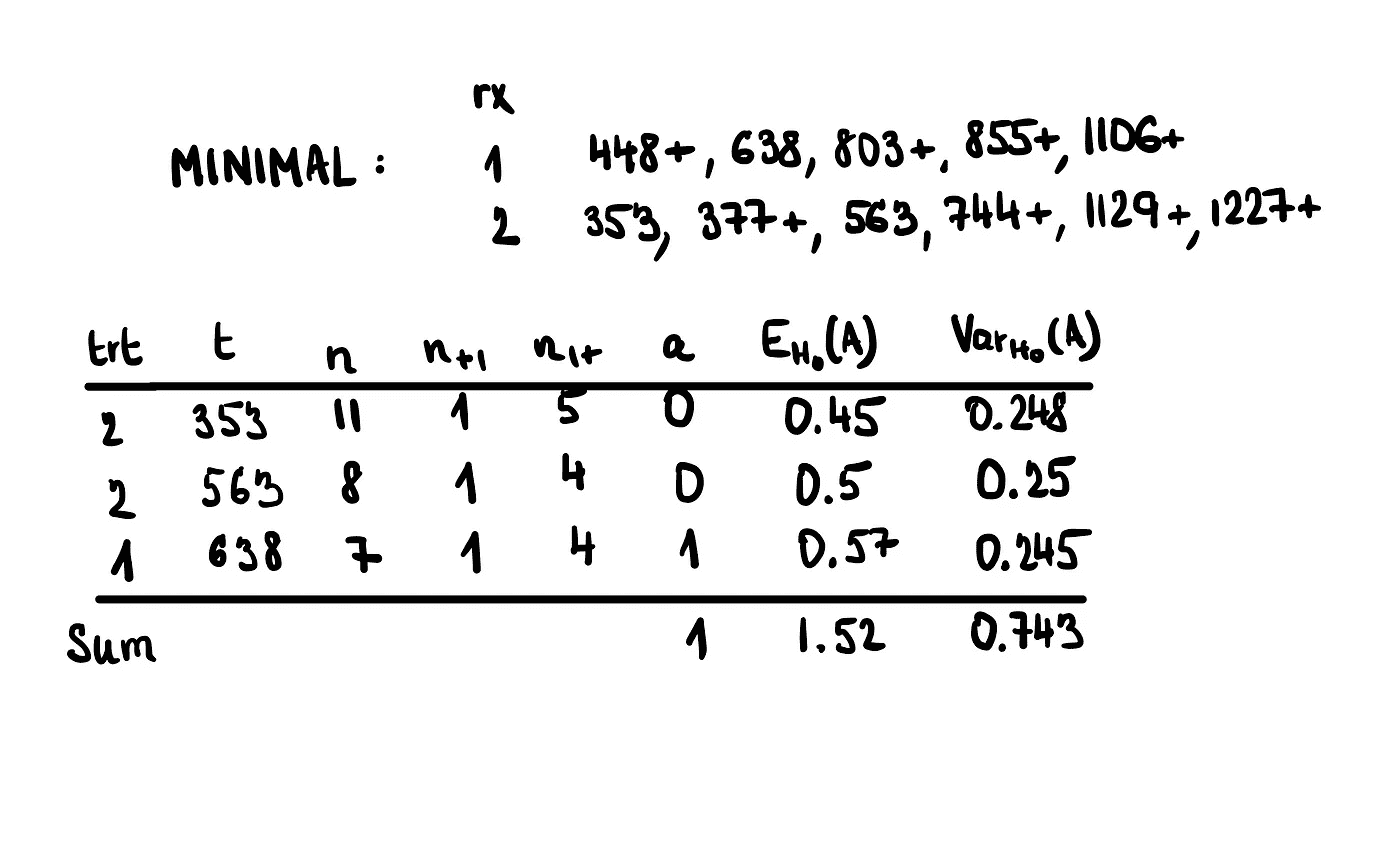 rx
MINIMAL: 1 448+, 638, 803+, 855+, 1106+
2 353, 377+, 563, 744+, 1129+, 1227+
trt t n n+1 n1+ a EH0(A) VarH0(A)
2 353 11 1 5 0 0.45 0.248
2 563 8 1 4 0 0.5 0.25
1 638 7 1 4 1 0.57 0.245
Sum 1 1.52 0.743